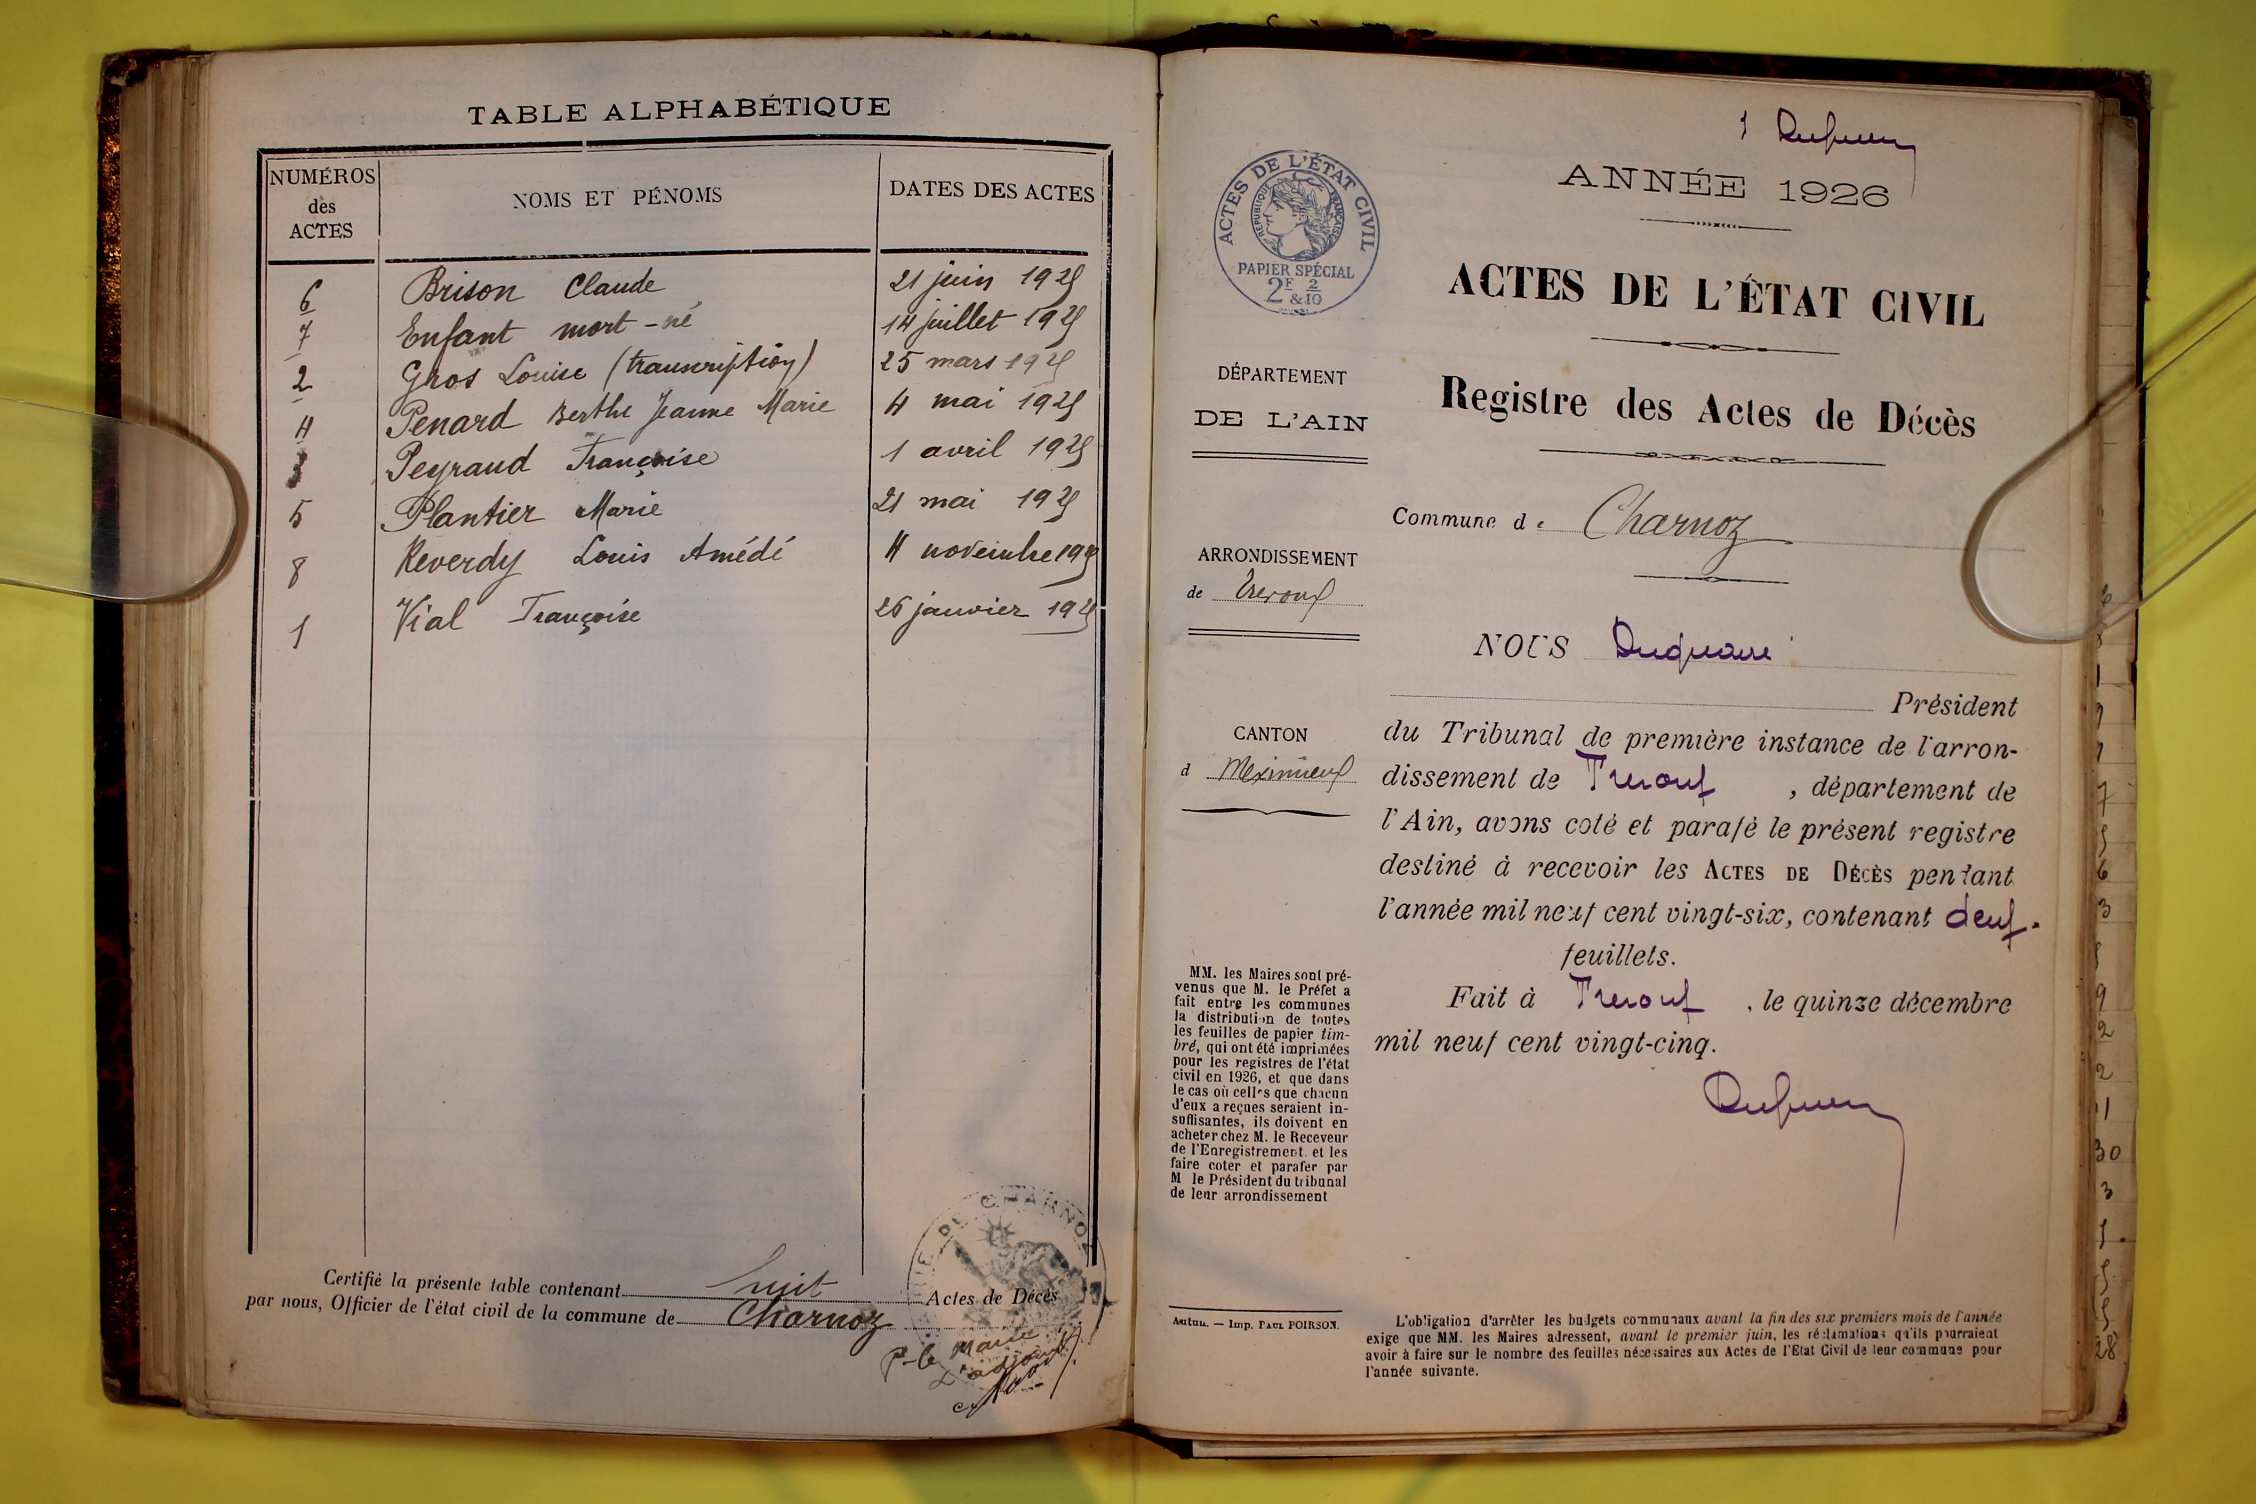 TABLE ALPHABÉTIQUE
NUMÉROS
des
ACTES
NOMS ET PÉNOMS
DATES DES ACTES
6 Brison Claude 21 juin 1925
7 Enfant mort-né 14 juillet 1925
2 Gros Louise (transcription) 25 mars 1925
4 Penard Berthe Jeanne Marie 4 mai 1925
3 Peyraud Françoise 1 avril 1925
5 Plantier Marie 21 mai 1925
8 Reverdy Louis Amédé 4 novembre 1925
1 Vial Françoise 26 janvier 1925
Certifié la présente table contenant huit Actes de Décès
par nous, Officier de l'état civil de la commune de Charnoz
P. le Maire
L'adjoint
1
ANNÉE 1926
ACTES DE L'ÉTAT CIVIL
RÉPUBLIQUE FRANÇAISE
PAPIER SPÉCIAL
2F 2
&10
ACTES DE L'ÉTAT CIVIL
Registre des Actes de Décès
DÉPARTEMENT
DE L'AIN
Commune de Charnoz
ARRONDISSEMENT
de Trévoux
CANTON
d Meximieux
NOUS
Président
du Tribunal de première instance de l'arron-
dissement de Trevoux, département de
l'Ain, avons coté et parafé le présent registre
destiné à recevoir les ACTES DE DÉCÈS pendant
l'année mil neuf cent vingt-six, contenant deux
feuillets.
Fait à Trevoux, le quinze décembre
mil neuf cent vingt-cinq.
MM. les Maires sont pré-
venus que M. le Préfet a
fait entre les communes
la distribution de toutes
les feuilles de papier tim-
bré, qui ont été imprimées
pour les registres de l'état
civil en 1926, et que dans
le cas où celles que chacun
d'eux a reçues seraient in-
suffisantes, ils doivent en
acheter chez M. le Receveur
de l'Enregistrement. et les
faire coter et parafer par
M le Président du tribunal
de leur arrondissement
Autun. — Imp. PAUL POIRSON.
L'obligation d'arrêter les budgets communaux avant la fin des six premiers mois de l'année
exige que MM. les Maires adressent, avant le premier juin, les réclamations qu'ils pourraient
avoir à faire sur le nombre des feuilles nécessaires aux Actes de l'Etat Civil de leur commune pour
l'année suivante.